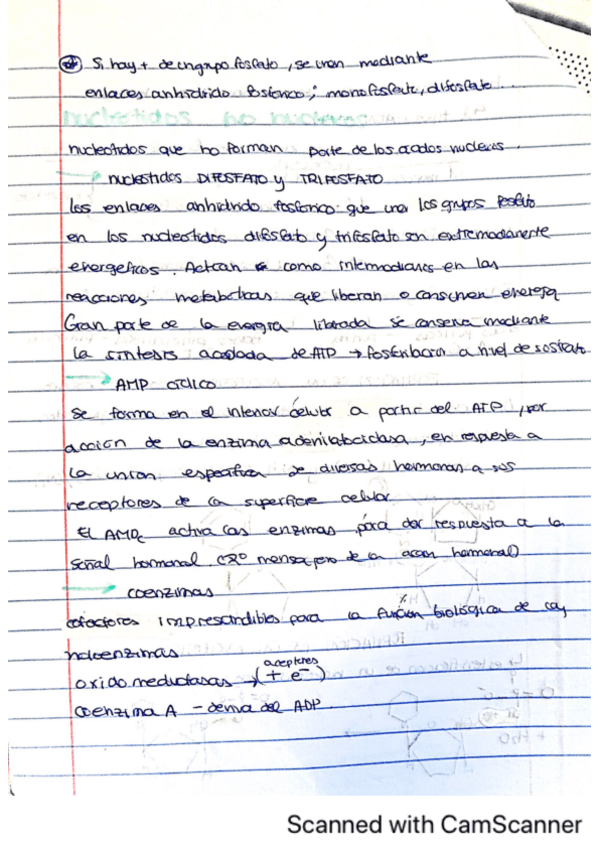 Si hay + de un grupo fosfato, se unen mediante
enlaces anhidrido fosforico; monofosfato, difosfato...
nucleotidos no nucleicos
nucleotidos que no forman parte de los acidos nucleicos.
→ nucleotidos DIFOSFATO y TRIFOSFATO
Los enlaces anhidrido fosforico que unen los grupos fosfato
en los nucleotidos difosfato y trifosfato son extremadamente
energeticos. Actuan como intermediarios en las
reacciones metabolicas que liberan o consumen energia
Gran parte de la energia liberada se conserva mediante
la sintesis acoplada de ATP → fosforilacion a nivel de sustrato
→ AMP ciclico
Se forma en el interior celular a partir del ATP, por
acción de la enzima adenilatociclasa, en respuesta a
la union especifica de diversas hormonas a sus
receptores de la superficie celular
El AMPc activa las enzimas para dar respuesta a la
señal hormonal (2º mensajero de la accion hormonal)
→ coenzimas
cofactores imprescindibles para la función biológica de las
holoenzimas
oxido reductasas → (+ e⁻)
aceptores
Coenzima A - deriva del ADP.
Scanned with CamScanner